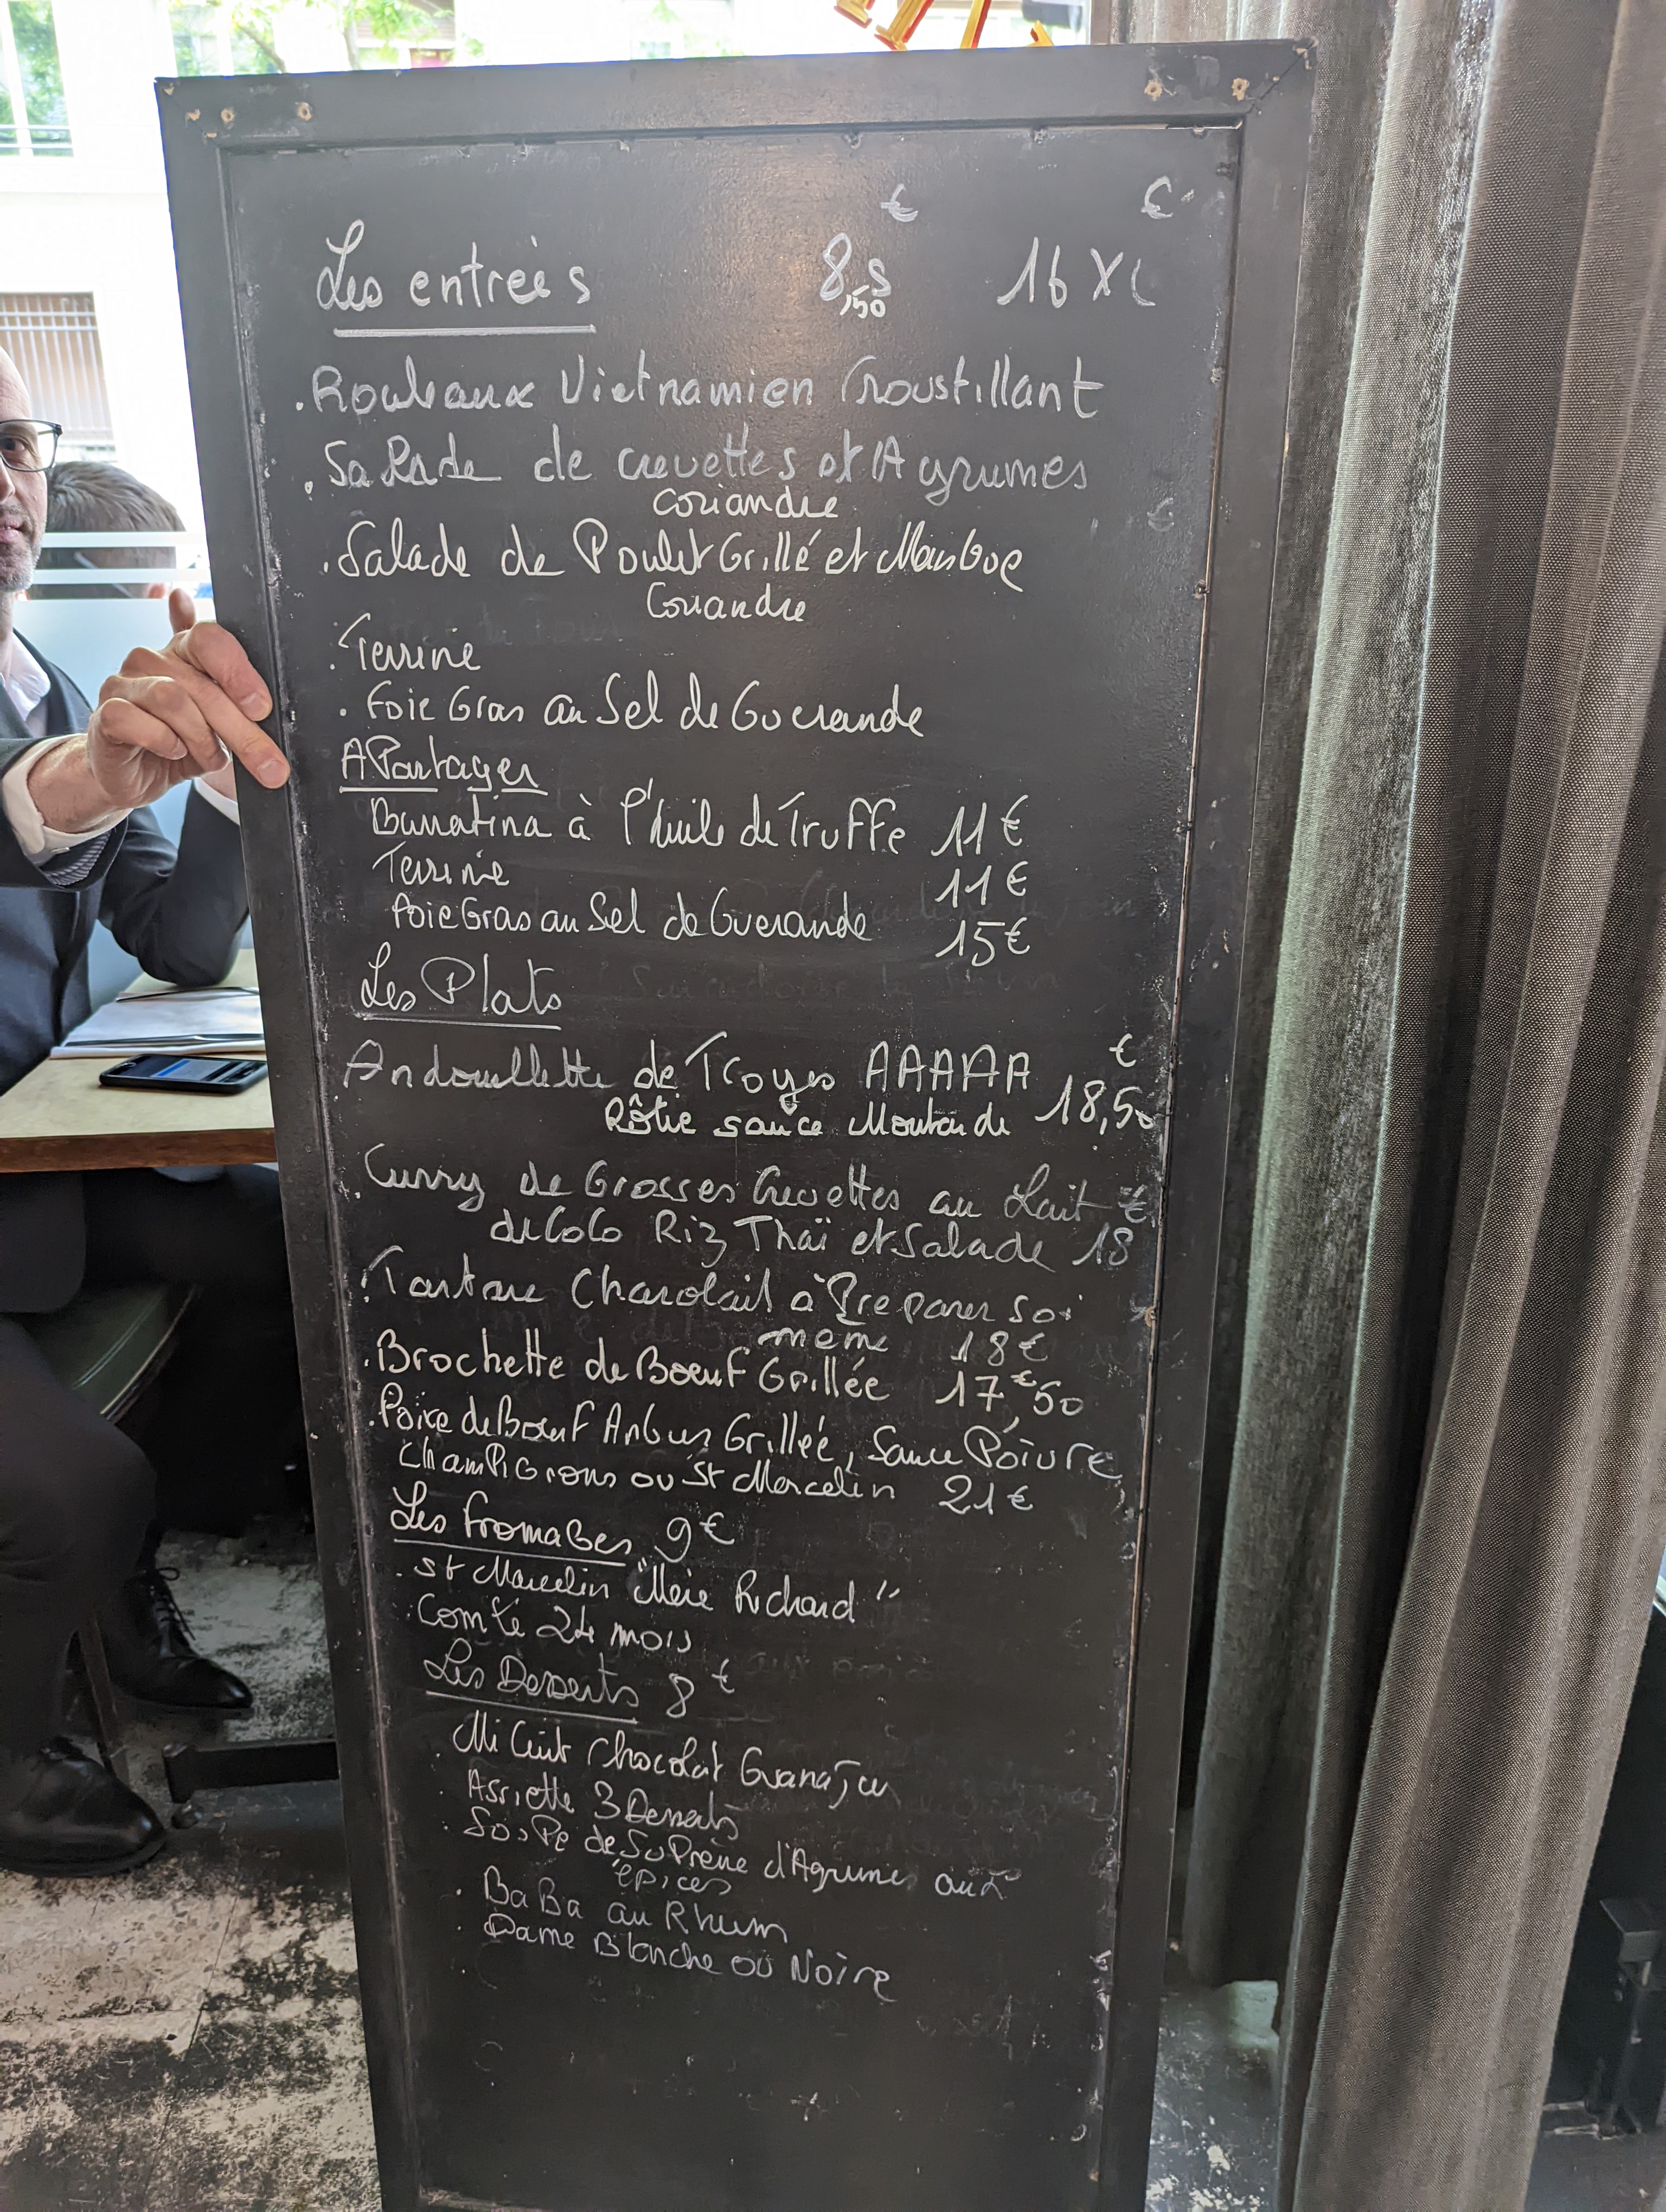 € €
Les entrées 8,50 S 16 XL
. Rouleaux Vietnamien Croustillant
. Salade de crevettes et Agrumes
coriandre
. Salade de Poulet Grillé et Mangue
Coriandre
. Terrine
. Foie Gras au Sel de Guerande
A Partager
Burratina à l'huile de Truffe 11€
Terrine 11€
Foie Gras au Sel de Guerande 15€
Les Plats
Andouillette de Troyes AAAAA €
Rôtie sauce Moutarde 18,50
. Curry de Grosses Crevettes au Lait €
de CoCo Riz Thaï et Salade 18
. Tartare Charolais à Preparer soi
même 18€
. Brochette de Boeuf Grillée 17,€50
. Poire de Boeuf Angus Grillée, Sauce Poivre
Champignons ou St Marcelin 21€
Les Fromages 9€
. St Marcelin "Mère Richard"
. Comté 24 mois
Les Desserts 8€
. Mi Cuit Chocolat Guanaja
. Assiette 3 Desserts
. Soupe de Suprême d'Agrumes aux
épices
. BaBa au Rhum
. Dame Blanche ou Noire